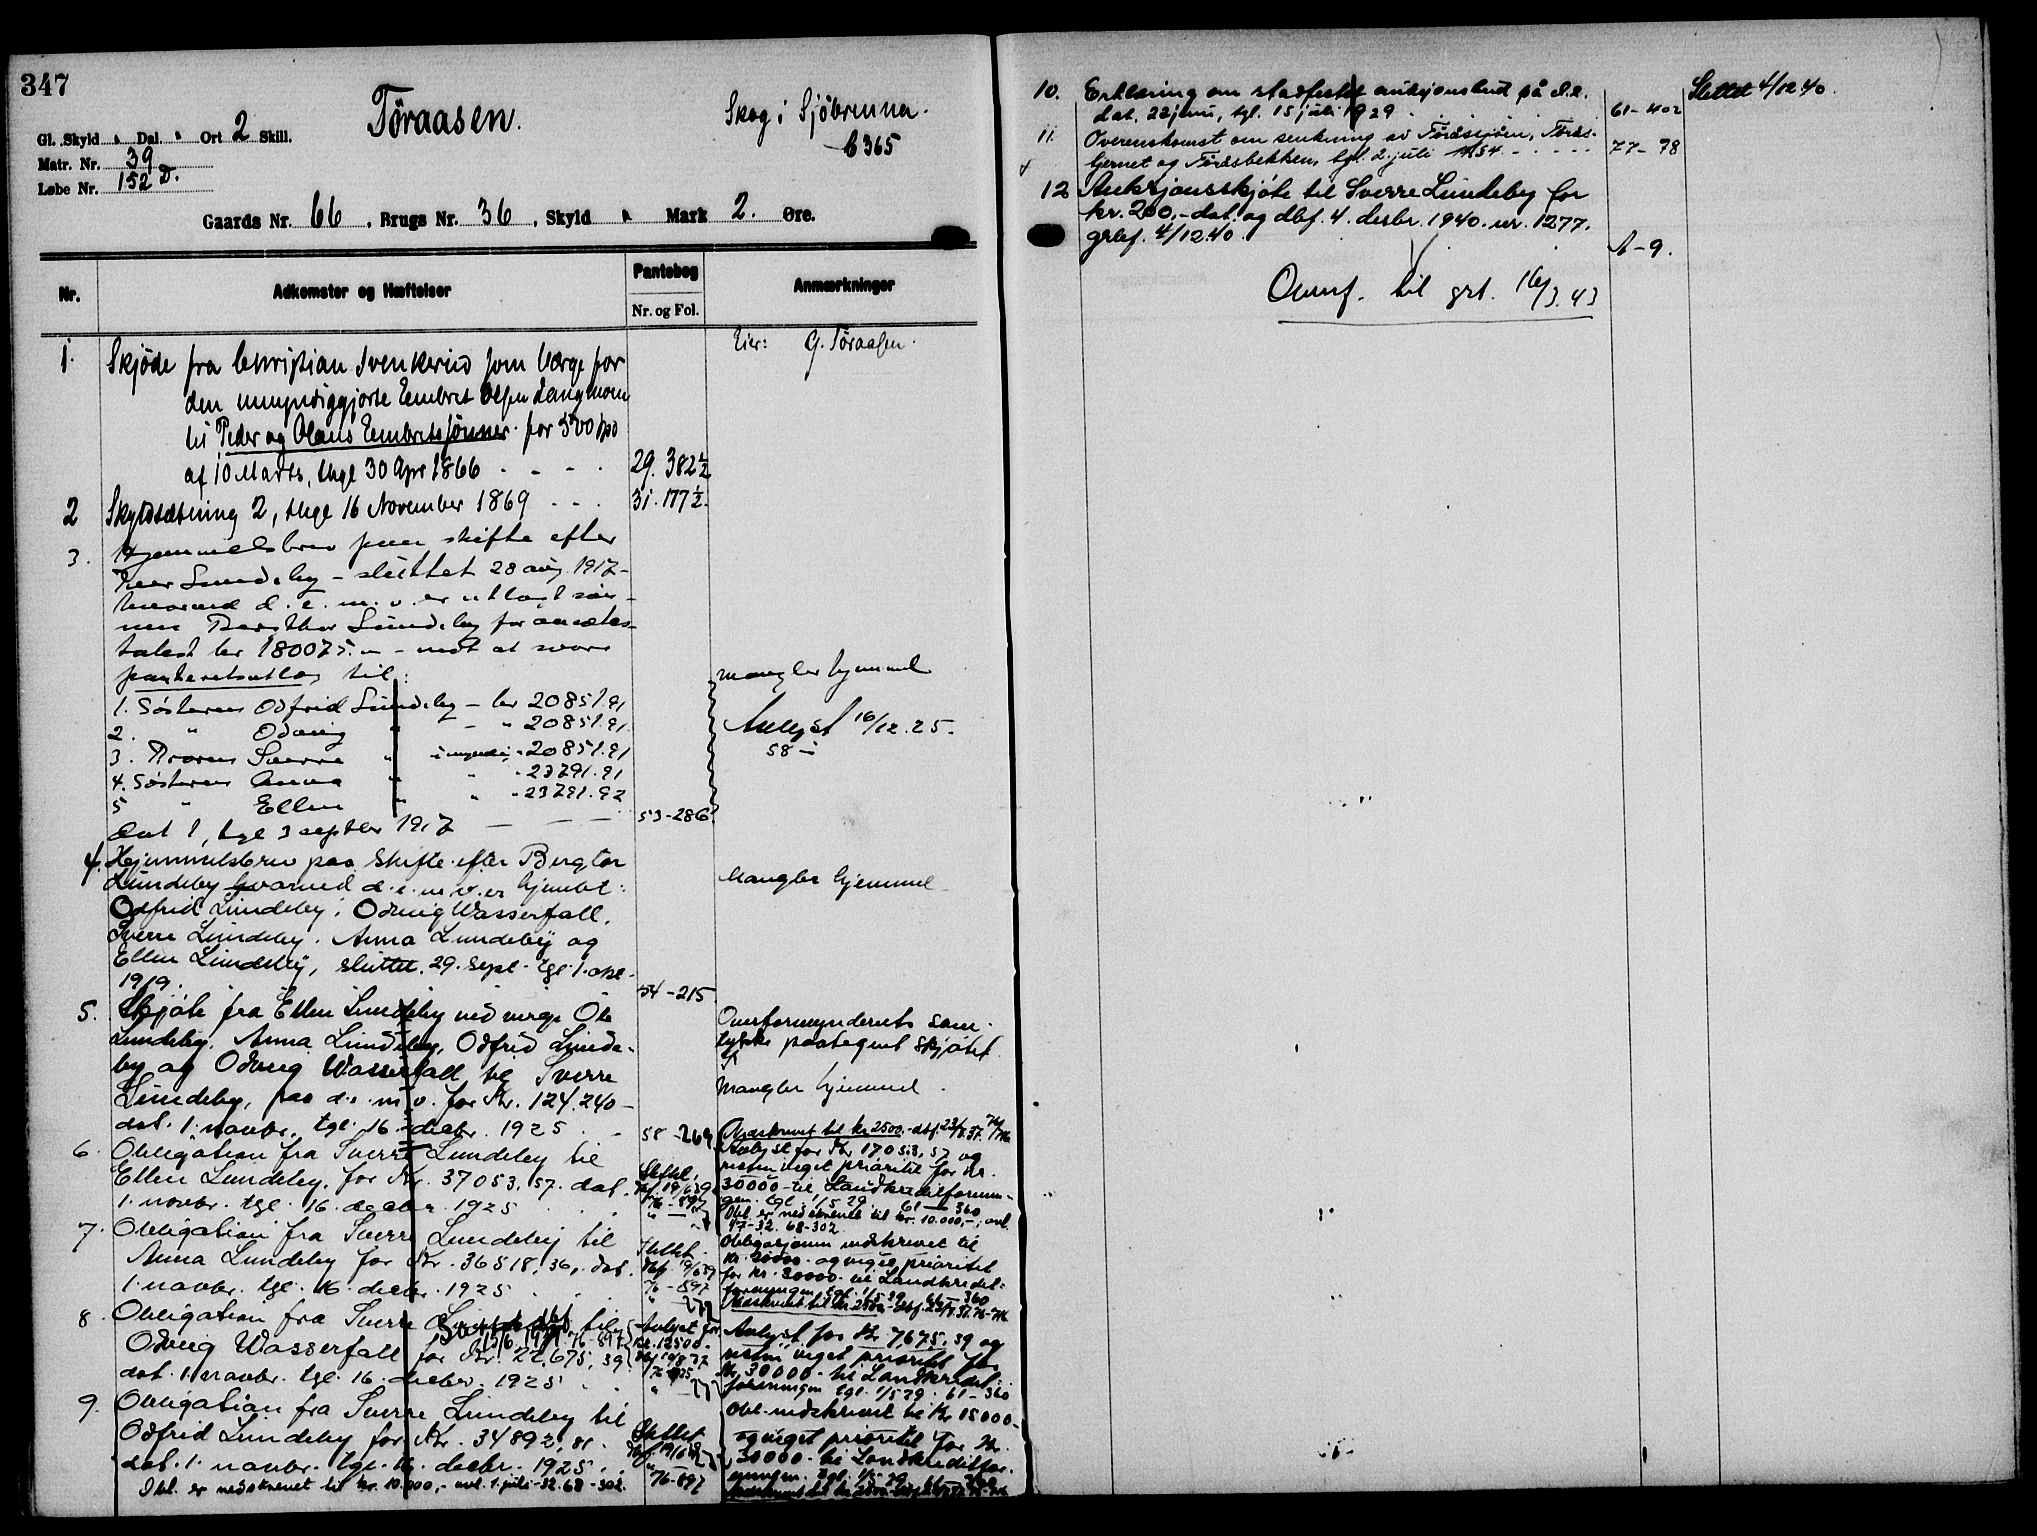 347
Töraasen.
Skog i Sjöbrenna.
b 365
Gl. Skyld " Dal. " Ort 2 Skill.
Matr. Nr. 39
Løbe Nr. 152 D.
Gaards Nr. 66, Brugs Nr. 36, Skyld " Mark 2. Øre.
Nr.
Adkomster og Hæftelser
Pantebog
Nr. og Fol.
Anmærkninger
Eier: G. Töraasen.
1. Skjöde fra Christian Svenkerud som Værge for
den umyndiggjorte Embret Olsen Langmoen
til Peder og Olaus Embretssønner for 500 Spd
af 10 Marts, thgl 30 Apr 1866 - - - 29. 382½
2 Skyldsætning 2, thgl 16 November 1869 - - - 31. 177½.
3. Hjemmelsbrev paa skifte efter
Peer Lundeby - sluttet 28 aug. 1917 -
hvorved d. e. m. v. er utlagt søn-
nen Bergthor Lundeby for aasætes-
takst kr 180075.- - mot at svare
panteretsutlæg til:
1. Søsteren Odfrid Lundeby - kr 20851.91
2. " Odveig " - " 20851.91
3. Broren Sverre " umyndig - 20851.91
4. Søsteren Anna " " - 23791.91
5 " Ellen " " - 23791.92
Dat 1, tgl 3 septbr 1917 - - - 53-286.
mangler hjemmel
Avlyst 16/12.25.
58 -
4. Hjemmelsbrev paa skifte efter Bergtor
Lundeby hvorved d. e. m. v. er hjemlet:
Odfrid Lundeby, Odveig Wasserfall,
Sverre Lundeby, Anna Lundeby og
Ellen Lundeby, sluttet 29. sept. tgl. 1. okt.
1919. 54-215
Mangler hjemmel
5. Skjøte fra Ellen Lundeby ved verge Ole
Lundeby, Anna Lundeby, Odfrid Lunde-
by og Odveig Wasserfall til Sverre
Lundeby, paa d. e. m. v. for Kr. 124.240 -
dat. 1. novbr. tgl. 16. decbr. 1925. - 58-269
Overformynderiets sam-
tykke paategnet skjøtet.
Mangler hjemmel.
6. Obligation fra Sverre Lundeby til
Ellen Lundeby, for Kr. 37053,57. dat.
1. novbr. tgl. 16. decbr. 1925
Slettet.
76-897
Nedskrevet til kr 2500.-
Avlyst for Kr 17053,57 og
resten veget prioritet for kr.
30000 - til Landkreditforenin-
gen. tgl. 1/5 29 61-360
Obl. er nedskrevet til kr. 10.000,-, avl.
1/7-32. 68-302
7. Obligation fra Sverre Lundeby til
Anna Lundeby for Kr. 36518,36, dat.
1. novbr. tgl. 16. decbr. 1925
Slettet.
76-897
Obligasjonen nedskrevet til
kr. 20000 - og veget prioritet
for kr. 30000 - til Landkredit-
foreningen tgl. 1/5 29 61-360
8. Obligation fra Sverre Lundeby til
Odveig Wasserfall for Kr. 22.675,39
dat. 1. novbr. tgl. 16. decbr. 1925
Avlyst for
kr. 12500.
Avlyst for Kr 7,675,39 og
resten veget prioritet for
kr. 30000 - til Landkredit-
foreningen tgl. 1/5 29. 61-360
9. Obligation fra Sverre Lundeby til
Odfrid Lundeby for Kr. 34892,81.
dat. 1. novbr. tgl. 16. decbr. 1925.
Obl. er nedskrevet til kr. 10.000,- avl. 1. juli -32. 68-302.
Slettet
76-897
Obl. nedskrevet til Kr 15000-
og veget prioritet for Kr.
30000 - til Landkreditfor-
eningen. tgl. 1/5-29 61-360
10. Erklæring om stadfestet auksjonsbud på d.e.
dat. 22 juni, tgl. 15 juli 1929. 61-402
Slettet 4/12 40.
11. Overenskomst om senkning av Töråssjøen, Törås-
tjernet og Töråsbekken, tgl. 2. juli 1934 - - - - 77-78
12 Auksjonsskjøte til Sverre Lundeby for
kr. 200,- dat. og dbf. 4. desbr. 1940. nr. 1277.
grbf. 4/12 40. A-9.
Overf. til grt. 16/3.43